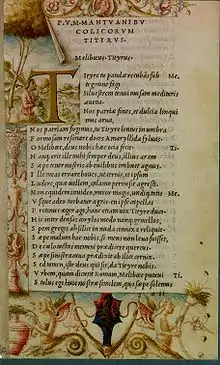 P. V. M. MANTVANI BV
COLICORVM
TITYRVS.
Melibœus. Tityrus.
T ityre tu patulæ recubās sub Me.
tegmine fagi
Siluestrem tenui musam meditaris
auena.
Nos patriæ fines, et dulcia linqui
mus arua,
N os patriam fugimus, tu Tityre lentus in umbra
F ormosam resonare doces Amaryllida syluas.
O Melibœe, deus nobis hæc ocia fecit. Ti.
N anq; erit ille mihi semper deus, illius aram
S æpe tener nostris ab ouilibus imbuet agnus.
I lle meas errare boues, ut cernis, et ipsum
L udere, quæ uellem, calamo permisit agresti.
N on equidem inuideo, miror magis, undiq; totis Me.
V sque adeo turbatur agris. en ipse capellas
P rotinus æger ago, hanc etiam uix Tityre duco.
H ic inter densas corylos modo nanq; gemellos,
S pem gregis ah silice in nuda connixa reliquit.
S æpe malum hoc nobis, si mens non læua fuisset,
D e cœlo tactas memini prædicere quercus.
S æpe sinistra caua prædixit ab ilice cornix.
S ed tamen, iste deus qui sit, da Tityre nobis.
V rbem, quam dicunt Romam, Melibœe putaui Ti.
S tultus ego huic nostræ similem, quo sæpe solemus